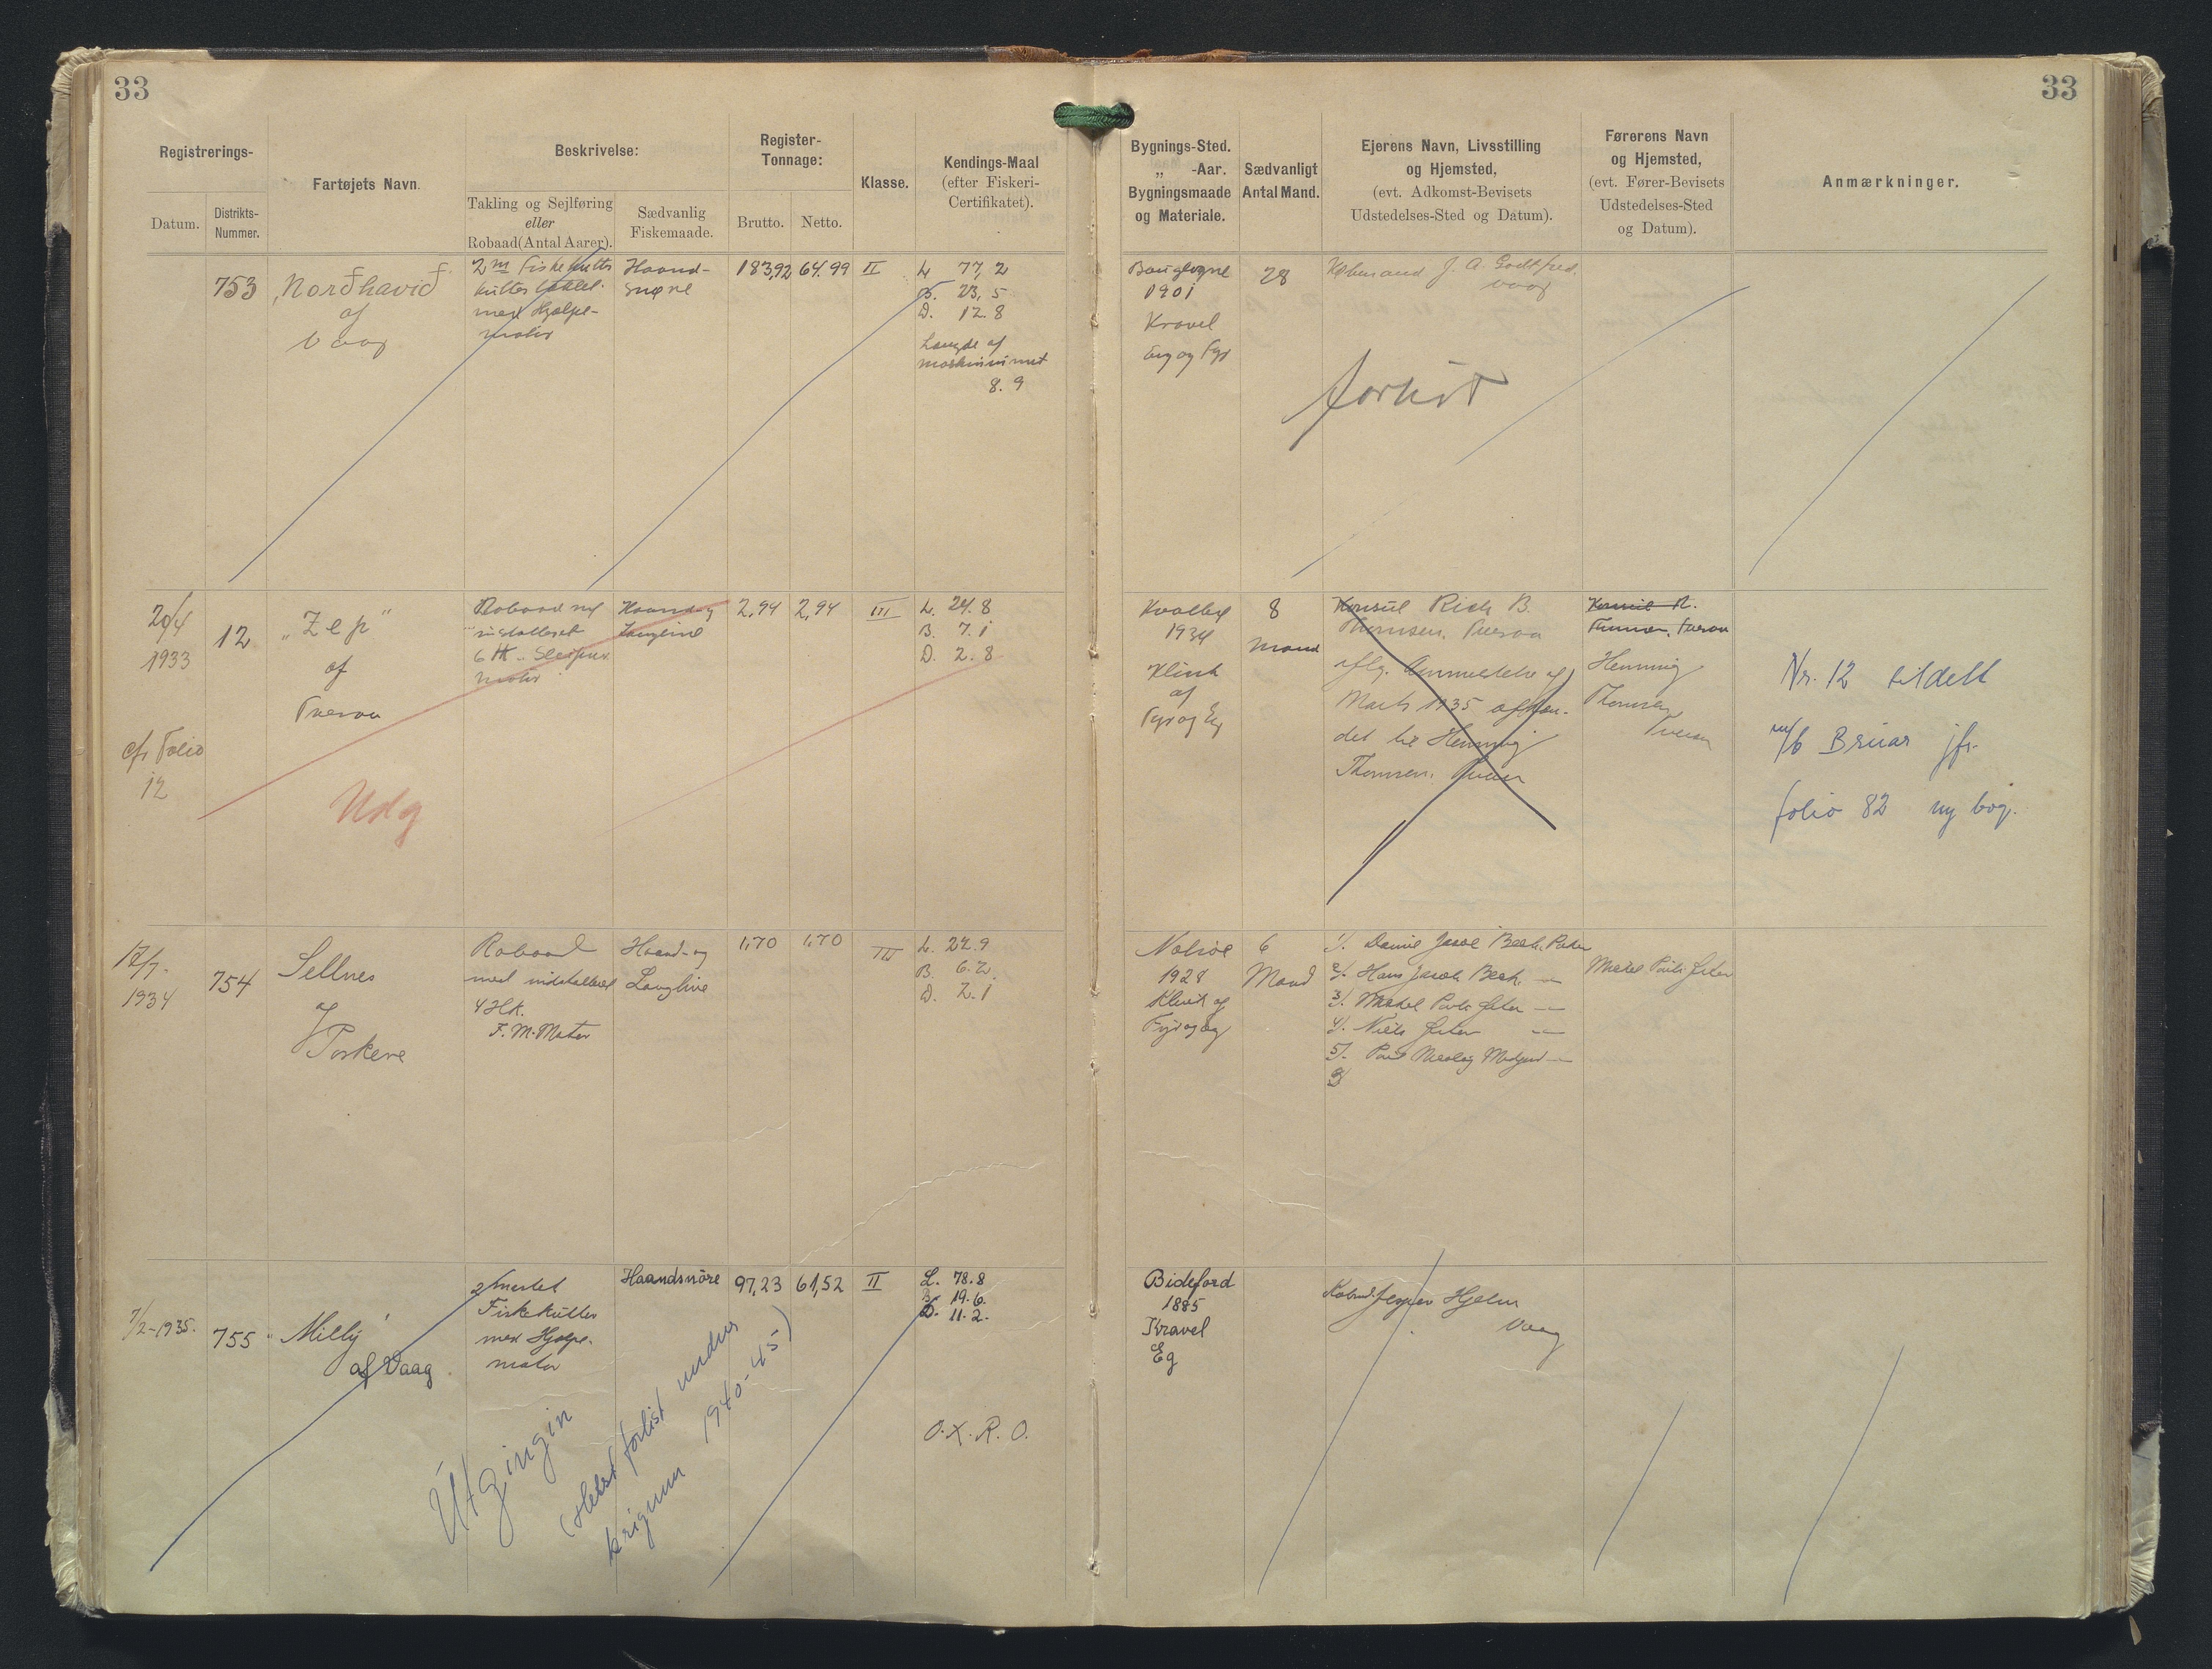 33
33
Registrerings-
Datum.
Distrikts-
Nummer.
Fartøjets Navn.
Beskrivelse:
Takling og Sejlføring
eller
Robaad (Antal Aarer).
Sædvanlig
Fiskemaade.
Register-
Tonnage:
Brutto.
Netto.
Klasse.
Kendings-Maal
(efter Fiskeri-
Certifikatet).
Bygnings-Sted.
„ -Aar.
Bygningsmaade
og Materiale.
Sædvanligt
Antal Mand.
Ejerens Navn, Livsstilling
og Hjemsted,
(evt. Adkomst-Bevisets
Udstedelses-Sted og Datum).
Førerens Navn
og Hjemsted,
(evt. Fører-Bevisets
Udstedelses-Sted
og Datum).
Anmærkninger.
753
Norðhavið
af
Vaag
2 m Fiskekutter
kutter
med Hjælpe-
motor
Haand-
snøre
183,92
64.99
II
L. 77,2
B. 23,5
D. 12.8
Længde af
maskinrummet
8.9
1901
Kravel
Eg og Fyr
28
Købmand J. A. Godtfred.
Vaag
forlist
20/4
1933
cfr Folio
12
12
„Zep"
af
Tveraa
Udg
Robaad med
installeret
6 HK. Sleipner
motor
Haand og
Langline
2,94
2,94
III
L. 24.8
B. 7.1
D. 2.8
Kvalbø
1934
Klink
af
Fyr og Eg
8
Mand
Konsul Rich B.
Thomsen, Tveraa
iflg. Anmeldelse af
Marts 1935 afhæn-
det til Henning
Thomsen, Tveraa
Konsul R.
Thomsen, Tveraa
Henning
Thomsen
Tveraa
Nr. 12 tildelt
m/b Brúar jfr.
folio 82 ny bog.
17/7-
1934
754
Sellnes
af
Porkere
Robaad
med indstalleret
4 HK.
F. M. Motor
Haand- og
Langline
1,70
1,70
III
L. 22.9
B. 6.2.
D. 2.1
Nolsøe
1928
Klink af
Fyr og Eg
6
Mand
1/. Daniel Jacob Bech, Porkere
2/. Hans Jacob Bech. —
3/. Mikkel Pauli —
4/. Niels —
5/. Poul Nicolaj —
Mikkel Pauli
7/2-1935.
755
„Milly"
af Vaag.
2/mastet
Fiskekutter
med Hjælpe-
motor
Haandsnöre
97,23
61,52
II
L. 78.8
B. 19.6.
D. 11.2.
O. X. R. O.
Útgingin
(Helst forlist undir
krígnum 1940-45)
Bideford
1885
Kravel
Eg
Købmd. Jesper Hjelm
Vaag